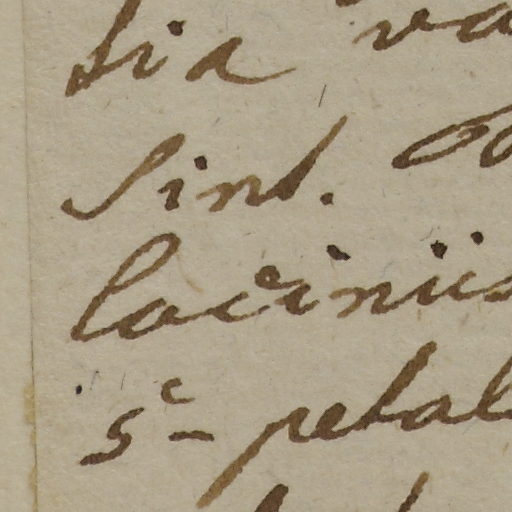 bia va
sint. Co
laciniis
5c- petal